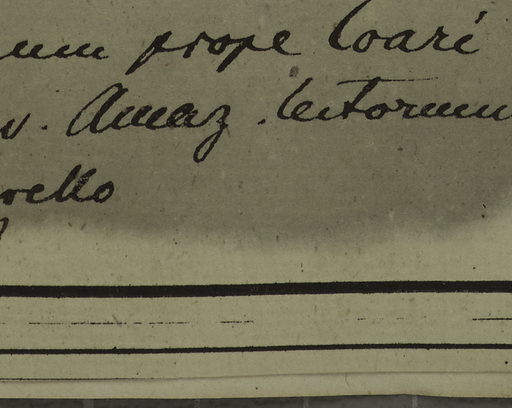 um prope Coari
v. Amaz. lectorum
rello